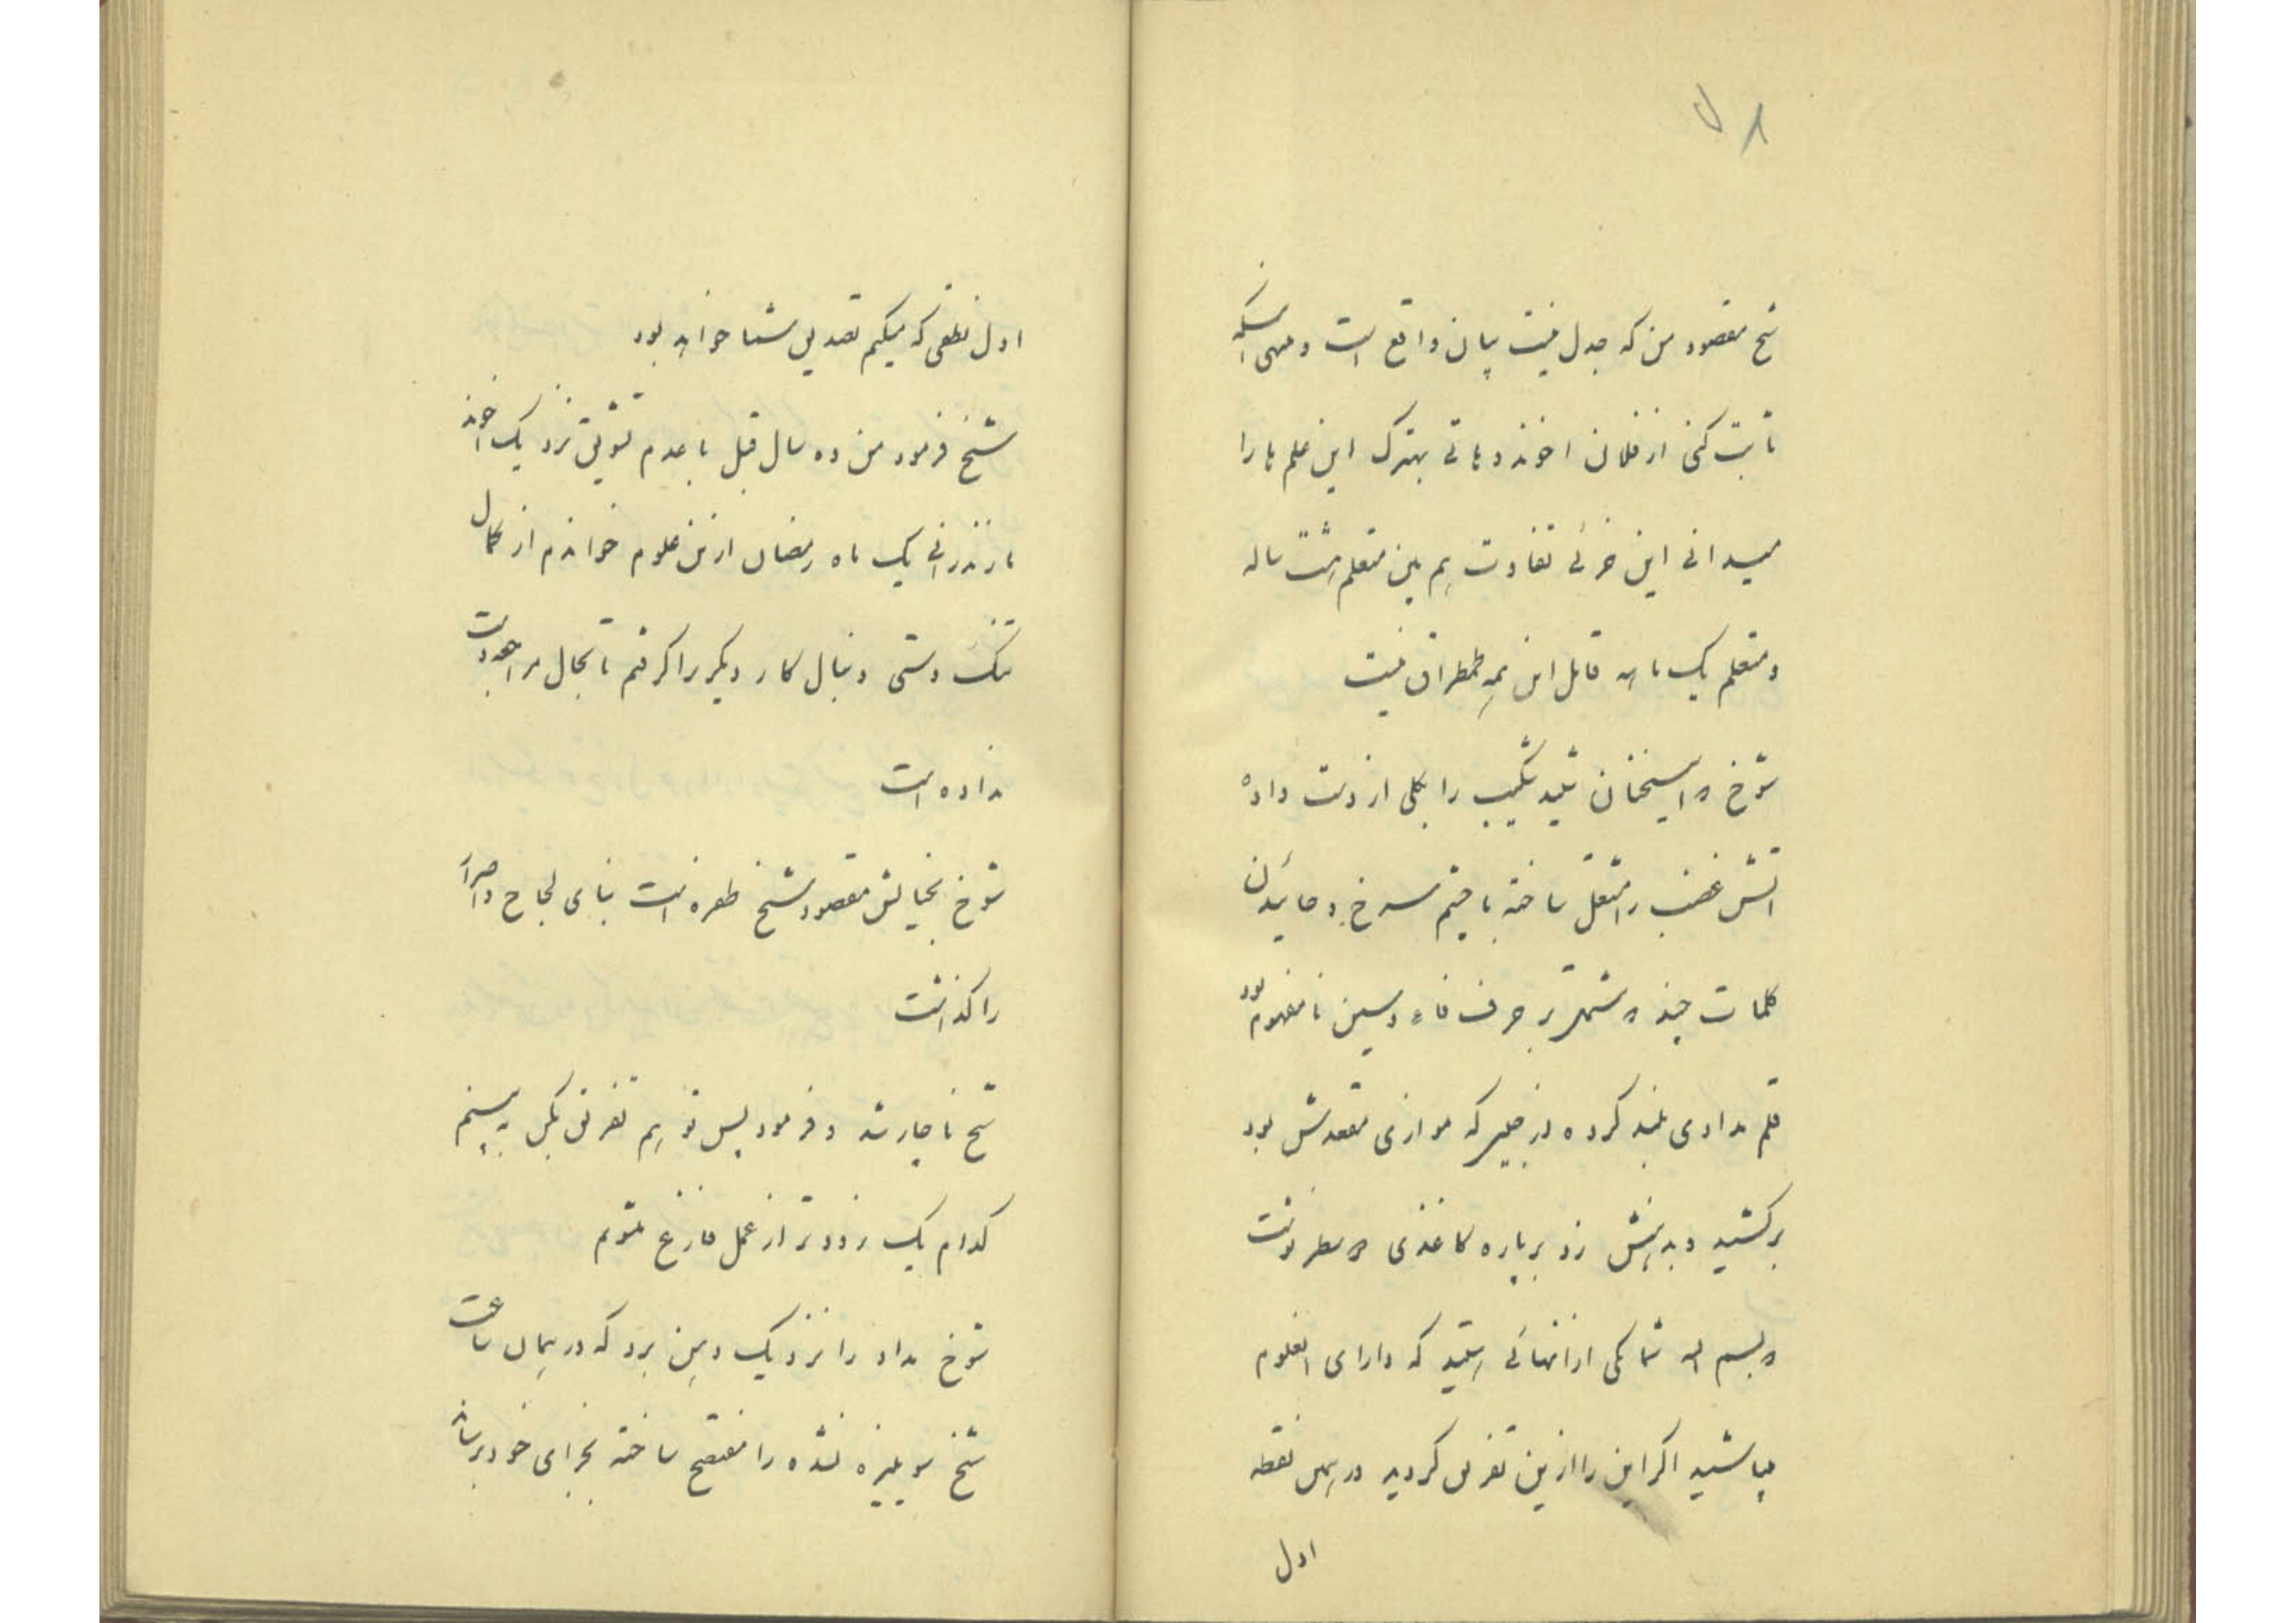 شیخ مقصود من که جدل نیست بیان واقع است و منهی اینکه
ثابت کنی از فلان اخوند دهاتی بهترک این علم ها را
میدانی این جزئی تفاوت هم بین متعلم هشت ساله
و متعلم یک ماهه قابل این همه طمطراق نیست
شوخ اینسخنان شنید شکیب را بکلی از دست داده
اتش غضب را مشتعل ساخته با چشم سرخ و خائیدن
کلمات چند مشتمل بر حرف فاء و سین نامفهوم بود
قلم مدادی بلند کرده از جلیز که موازی مقعدش بود
برکشید و بدهنش زد بر پاره کاغذی سطر نوشت
بسم اله شما یکی از انهائی هستید که دارای انعلوم
میباشید اگر این را ازین تفریق کردید در همین نقطه
اول
اول نطقی که میکنم تصدیق شما خواهد بود
شیخ فرمود من ده سال قبل با عدم تشویق نزد یک اخوند
مازندرانی یک ماه رمضان ازین علوم خواندم از کمال
تنگ دستی دنبال کار دیگر را گرفتم تا بحال مراجعت
نداده است
شوخ بخیالش مقصود شیخ طفره است بنای لجاج و اصرار
را گذاشت
شیخ ناچار شد و فرمود پس تو هم تفریق بکن به بینم
کدام یک زودتر از عمل فارغ میشویم
شوخ مداد را نزدیک دهن برد که در همان ساعت
شیخ نشده را مفتضح ساخته بجزای خود برساند